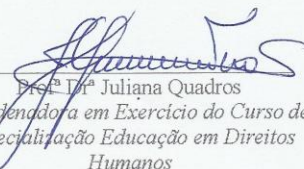 Profª Drª Juliana Quadros
denadora em Exercício do Curso de
ecialização Educação em Direitos
Humanos